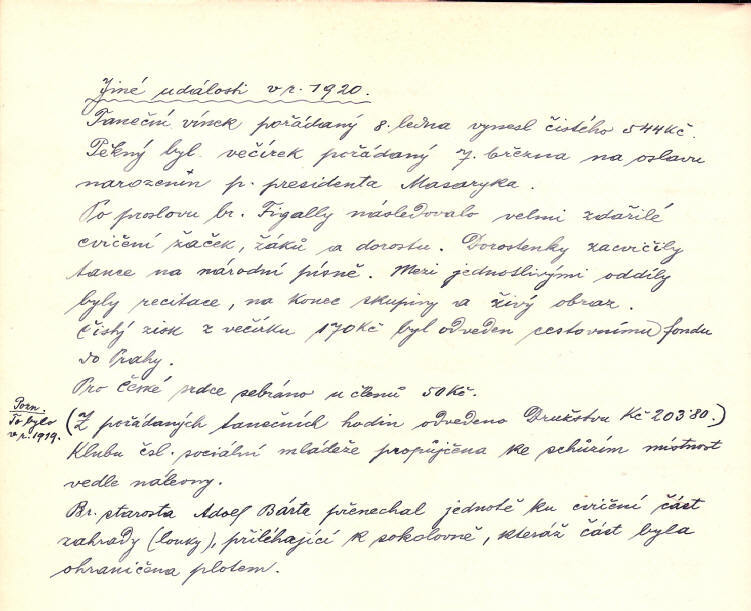 Jiné události v r. 1920.
Taneční vínek pořádaný 8. ledna vynesl čistého 544 Kč.
Pěkný byl večírek pořádaný 7. března na oslavu
narozenin p. presidenta Masaryka.
Po proslovu br. Figally následovalo velmi zdařilé
cvičení žaček, žáků a dorostu. Dorostenky zacvičily
tance na národní písně. Mezi jednotlivými oddíly
byly recitace, na konec skupiny a živý obraz.
Čistý zisk z večírku 170 Kč byl odveden cestovnímu fondu
do Prahy.
Pro České srdce sebráno u členů 50 Kč.
Pozn.
To bylo
v r. 1919.
(Z pořádaných tanečních hodin odvedeno Družstvu Kč 203·80.)
Klubu čsl. sociální mládeže propůjčena ke schůzím místnost
vedle nálevny.
Br. starosta Adolf Bárta přenechal jednotě ku cvičení část
zahrady (louky), přiléhající k sokolovně, kteráž část byla
ohraničena plotem.